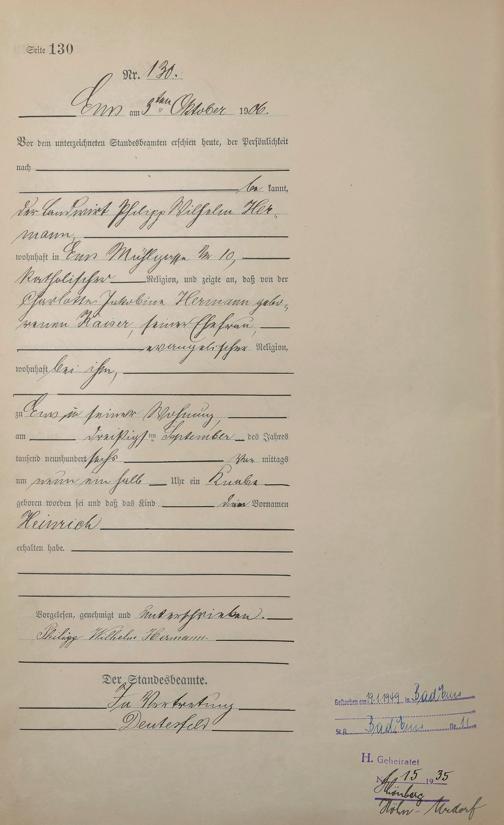 Seite 130
Nr. 130.
Ems am 3ten Oktober 1906.
Vor dem unterzeichneten Standesbeamten erschien heute, der Persönlichkeit
nach
be kannt,
der Landwirt Philipp Wilhelm Her-
mann,
wohnhaft in Ems Mühlgasse № 10,
katholischer Religion, und zeigte an, daß von der
Charlotte Jakobine Hermann gebo-
renen Kaiser, seiner Ehefrau,
evangelischer Religion,
wohnhaft bei ihm,
zu Ems in seiner Wohnung,
am dreißigsten September des Jahres
tausend neunhundert sechs Vor mittags
um neun ein halb Uhr ein Knabe
geboren worden sei und daß das Kind den Vornamen
Heinrich
erhalten habe.
Vorgelesen, genehmigt und unterschrieben.
Philipp Wilhelm Hermann
Der Standesbeamte.
In Vertretung
Gestorben am 1949 in Bad Ems
St.A. Bad Ems Nr. 11
H. Geheiratet
Nr. 15 1935